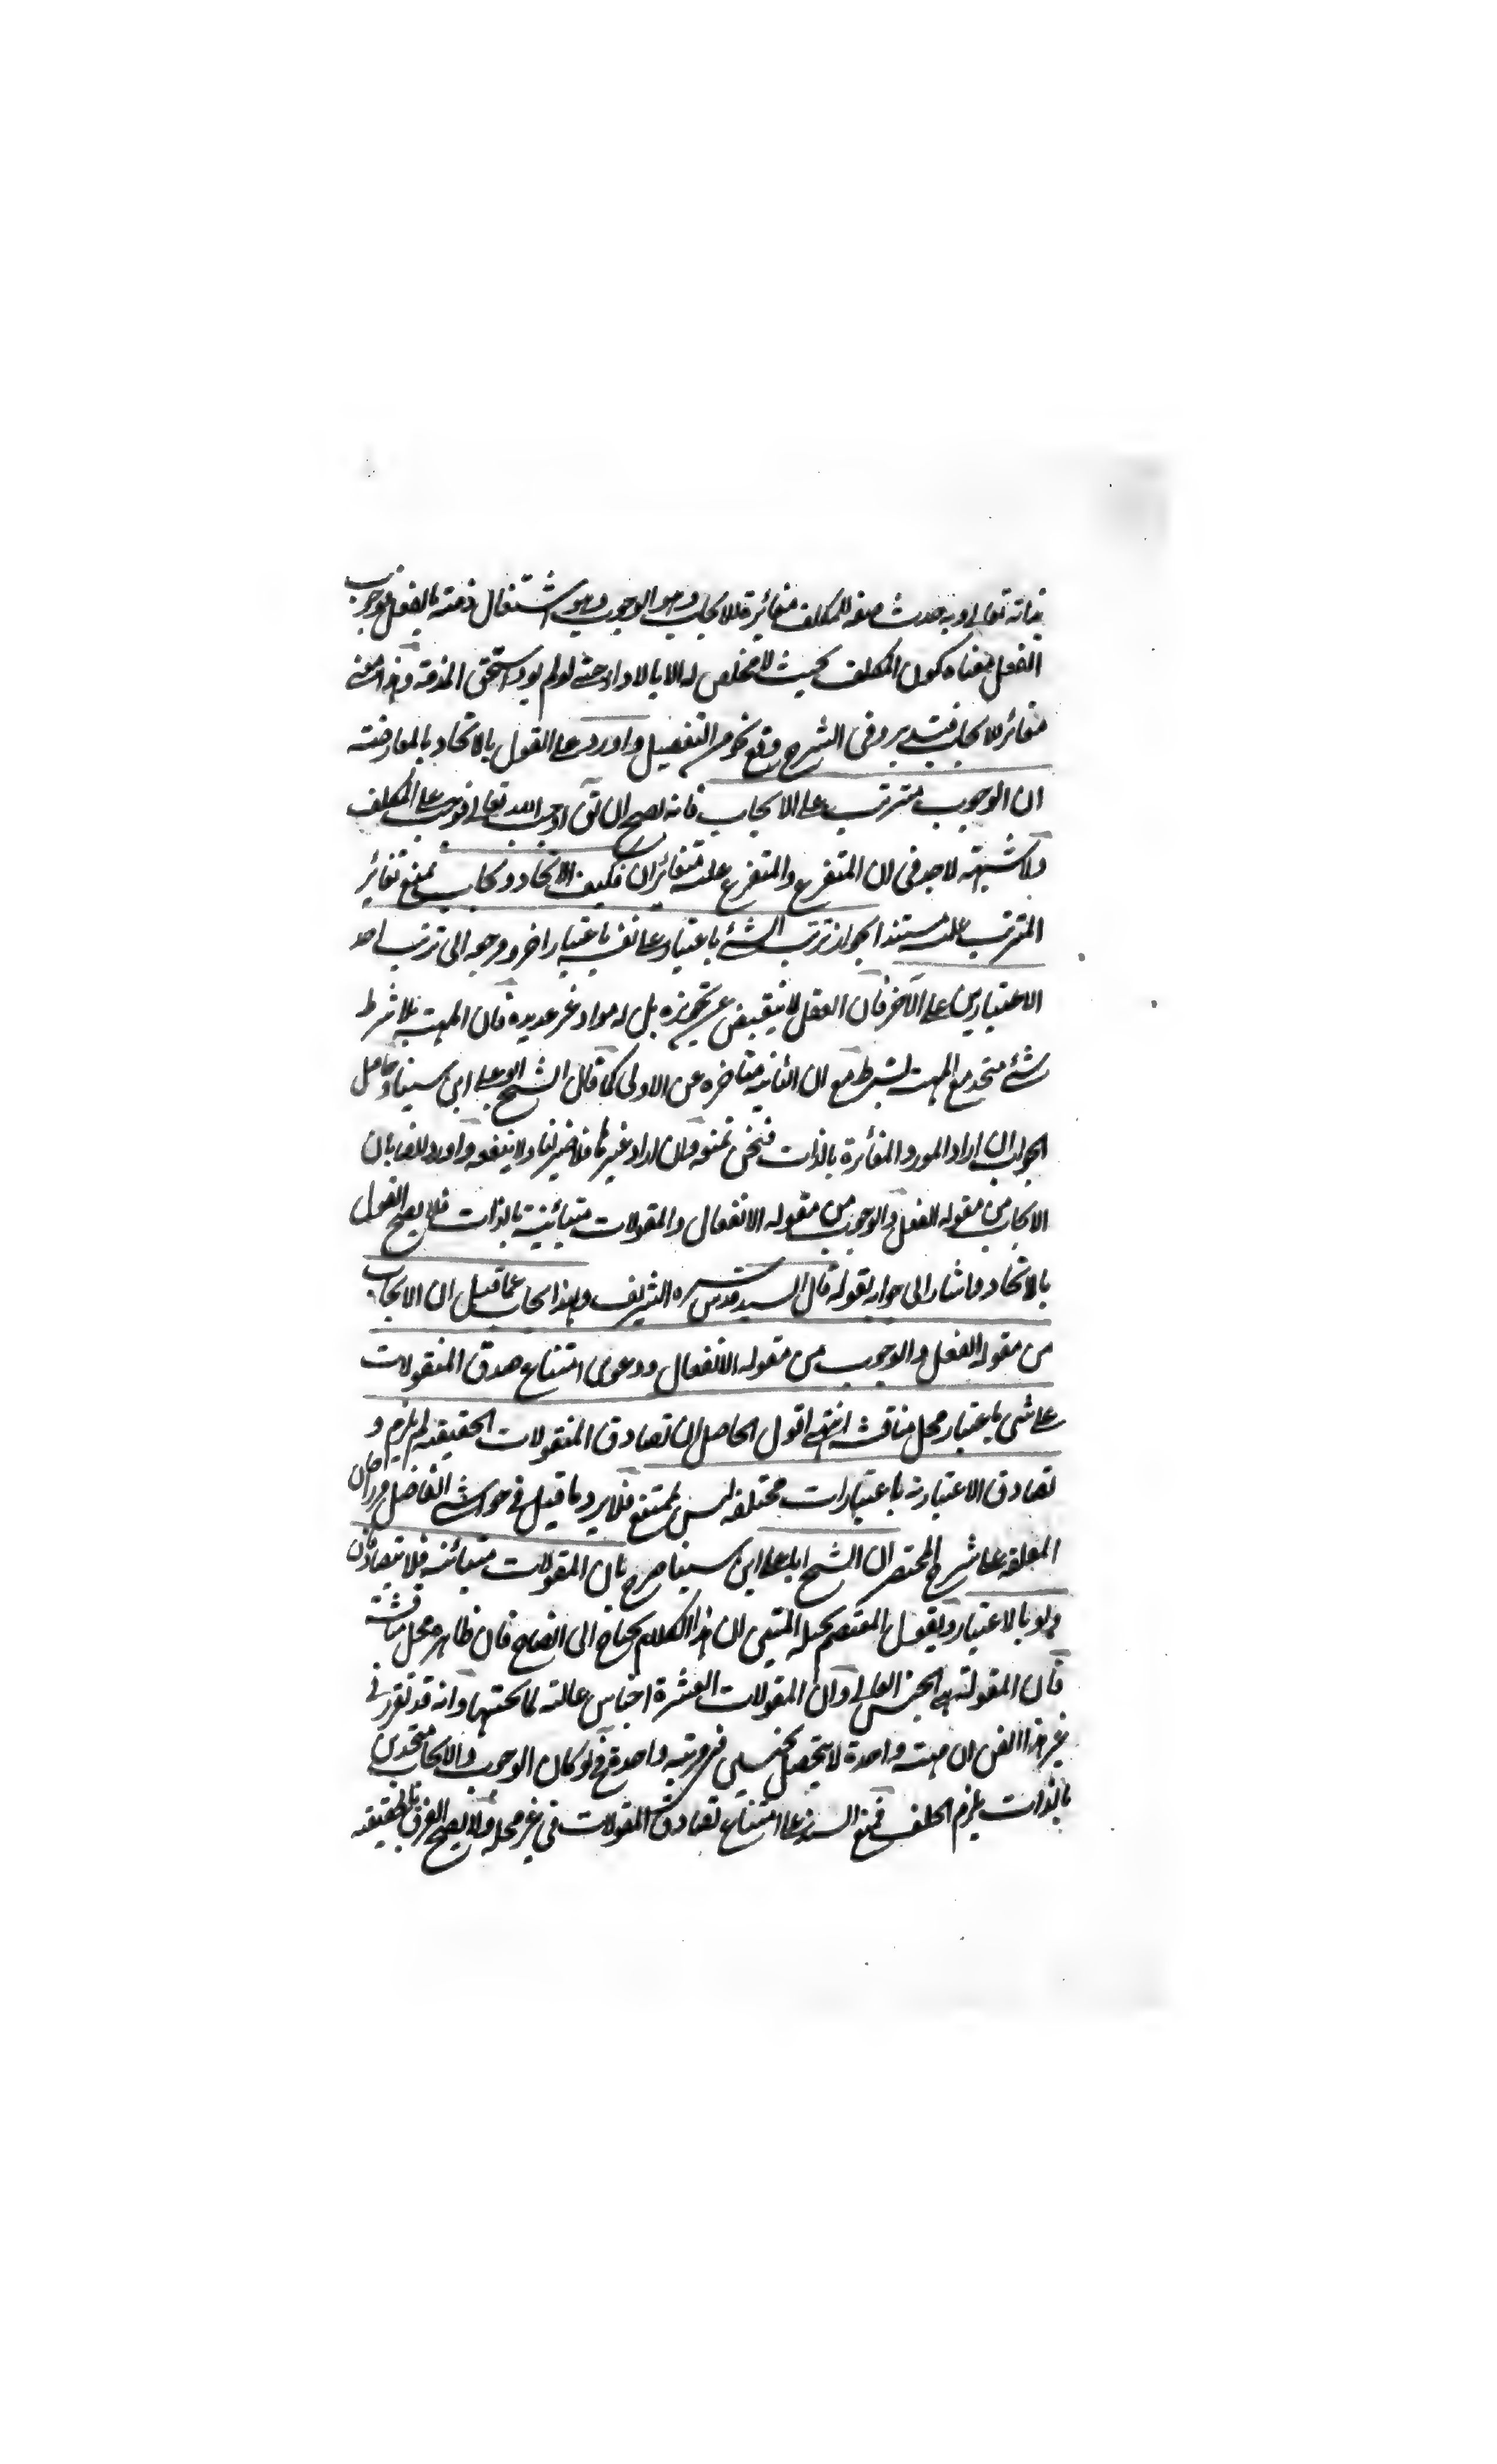 بذاته تعالى وبه حدث صفة للمكلف مغائرة للايجاب وهو الوجوب وهو اشتغال ذمته بالفعل فوجوب
الفعل معناه كون المكلف بحيث لا مخلص له الا بالاداء حتى لو لم يود استحق المذمة وهذا معنى
مغائر للايجاب فتدبر وفى الشرح وقع نحو من التفصيل واورد على القول بالاتحاد بالمعارضة
ان الوجوب مترتب على الايجاب فانه يصح ان يق اوجب الله تعالى فوجب على المكلف
ولا شبهة لاحد فى ان المتفرع والمتفرع عليه متغائران فكيف الاتحاد ويجاب بمنع تغائر
المترتب عليه مستندا بجواز ترتب الشئ باعتبار على نفسه باعتبار اخر ومرجعه الى ترتب احد
الاعتبارين على الآخر فان العقل لا ينقبض عن تجويزه بل له مواد غير عديدة فان المهية بلا شرط
شئ متحد مع المهية بشرط مع ان الثانية متاخرة عن الاولى كما قال الشيخ ابو على ابن سينا وحاصل
الجواب ان اراد المورد المغائرة بالذات فنحن نمنعه وان اراد غيرها فلا يضرنا ولا ينفعه واورد ايضا بان
الايجاب من مقولة الفعل والوجوب من مقولة الانفعال والمقولات متبائنة بالذات فلا يصح القول
بالاتحاد واشار الى جوابه بقوله قال السيد قدس سره الشريف وبهذا يجاب عما قيل ان الايجاب
من مقولة الفعل والوجوب من مقولة الانفعال ودعوى امتناع صدق المقولات
على شئ باعتبار محل مناقشة انتهى اقول الحاصل ان تصادق المقولات الحقيقية لم يلزم و
تصادق الاعتبارية باعتبارات مختلفة ليس بممتنع فلا يرد ما قيل فى حواشى الفاضل مرزاجان
المعلقة على شرح المختصر ان الشيخ ابا على ابن سينا صرح بان المقولات متبائنة فلا يتصادقان
ولو بالاعتبار ويقول المعتصم بحبله المتين ان هذا الكلام يحتاج الى ايضاح فان ظاهره محل مناقشة
فان المقولة هى الجنس العالى وان المقولات العشرة اجناس عالية لما تحتها وانه قد تقرر فى
غير هذا الفن ان مهية واحدة لا يتحصل بجنسين فى مرتبة واحدة فح لو كان الوجوب والايجاب متحدين
بالذات يلزم الخلف فمنع السند على امتناع تصادق المقولات فى غير محله ولا يصح الفرق بالحقيقية